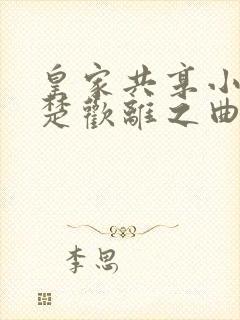 皇家共享小
楚歡離之曲
李思